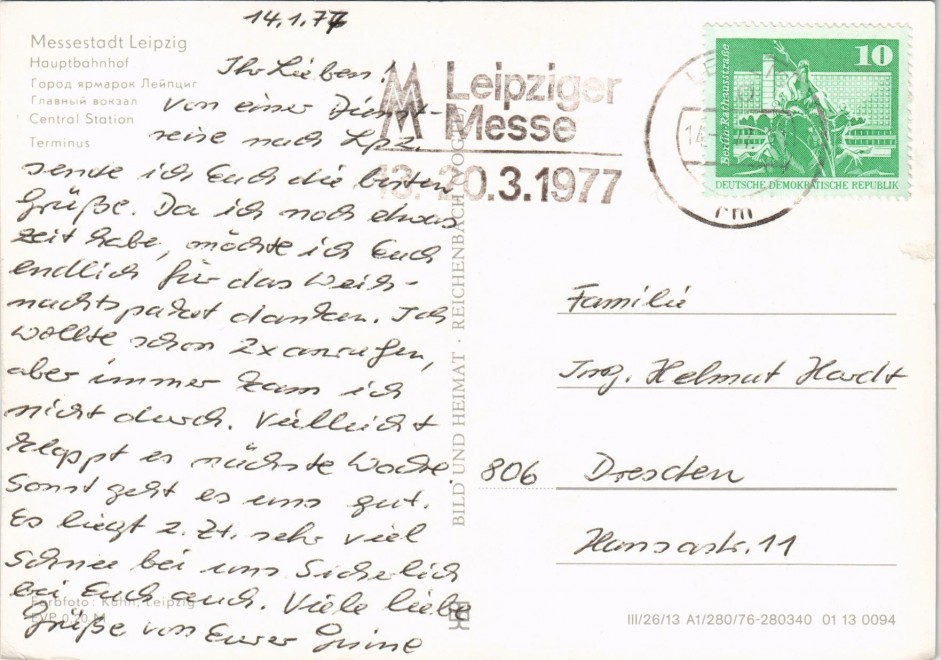 14.1.77
Messestadt Leipzig
Hauptbahnhof
Город ярмарок Лейпциг
Главный вокзал
Central Station
Terminus
Ihr Lieben!
Von einer Dienst-
reise nach Lpz.
sende ich Euch die besten
Grüße. Da ich noch etwas
Zeit habe, möchte ich Euch
endlich für das Weih-
nachtspaket danken. Ich
wollte schon 2x anrufen,
aber immer kam ich
nicht durch. Vielleicht
klappt es nächste Woche.
Sonst geht es uns gut.
Es liegt z. Zt. sehr viel
Schnee bei uns. Sicherlich
bei Euch auch. Viele liebe
Grüße von Eurer
Farbfoto: Kühn, Leipzig
EVP 0,20 M
BILD UND HEIMAT · REICHENBACH
Leipziger
Messe
13.-20.3.1977
10
Berlin-Rathausstraße
DEUTSCHE DEMOKRATISCHE REPUBLIK
14
rm
Familie
Ing. Helmut Hardt
806 Dresden
Hansastr. 11
III/26/13 A1/280/76-280340 01 13 0094